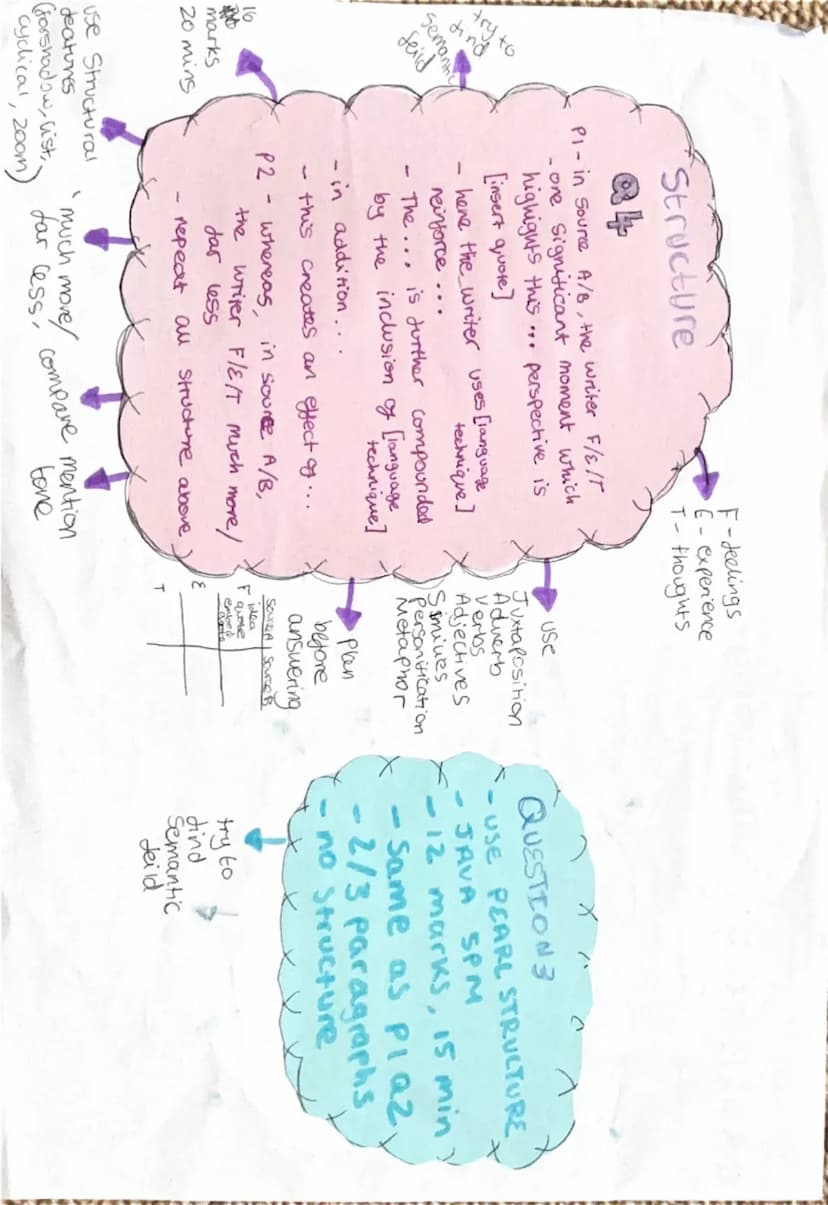 Structure
Q4
P1 - in source A/B, the writer F/E/T
- one significant moment which
highlights this ... perspective is
[insert quote]
- here the writer uses [language
technique]
reinforce ...
- The ... is further compounded
by the inclusion of [language
technique]
- in addition ...
- this creates an effect of ...
P2 - whereas, in source A/B,
the writer F/E/T much more/
far less
- repeat all structure above
F - feelings
E - experience
T - thoughts
use
Juxtaposition
Adverb
Verbs
Adjectives
Similies
Personification
Metaphor
Plan
before
answering
source A source B
F idea
quote
embed
quote
E
T
try to
find
semantic
feild
16
marks
20 mins
use structural
features
(forshadow, list,
cyclical, zoom)
'much more/
far less,
compare mention
tone
QUESTION 3
- USE PEARL STRUCTURE
- JAVA SPM
- 12 marks, 15 min
- Same as P1Q2
- 2/3 paragraphs
- no structure
try to
find
semantic
feild